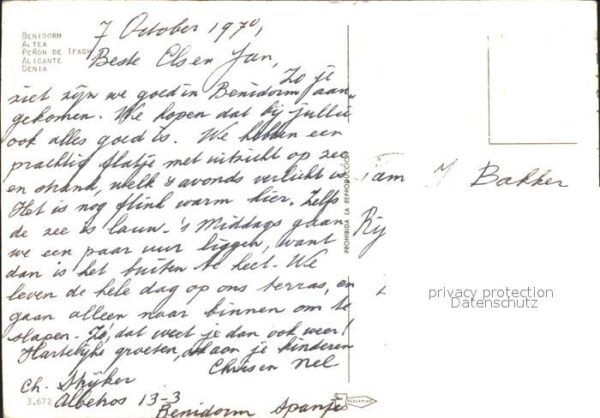 BENIDORM
ALTEA
PEÑON DE IFACH
ALICANTE
DENIA
7 October 1970,
Beste Els en Jan,
Zo je
ziet zijn we goed in Benidorm aan-
gekomen. We hopen dat bij jullie
ook alles goed is. We hebben een
prachtig flatje met uitzicht op zee
en strand, welk 's avonds verlicht is.
Het is nog flink warm hier. Zelfs
de zee is lauw. 's Middags gaan
we een paar uur liggen, want
dan is het buiten te heet. We
leven de hele dag op ons terras, en
gaan alleen naar binnen om te
slapen. Zo, dat weet je dan ook weer!
Hartelijke groeten, ook aan je kinderen
Chris en Nel
Ch. Strijker
Albetros 13-3
Benidorm Spanje
3.672
PROHIBIDA LA REPRODUCCION
Fam J Bakker
Rij
privacy protection
Datenschutz